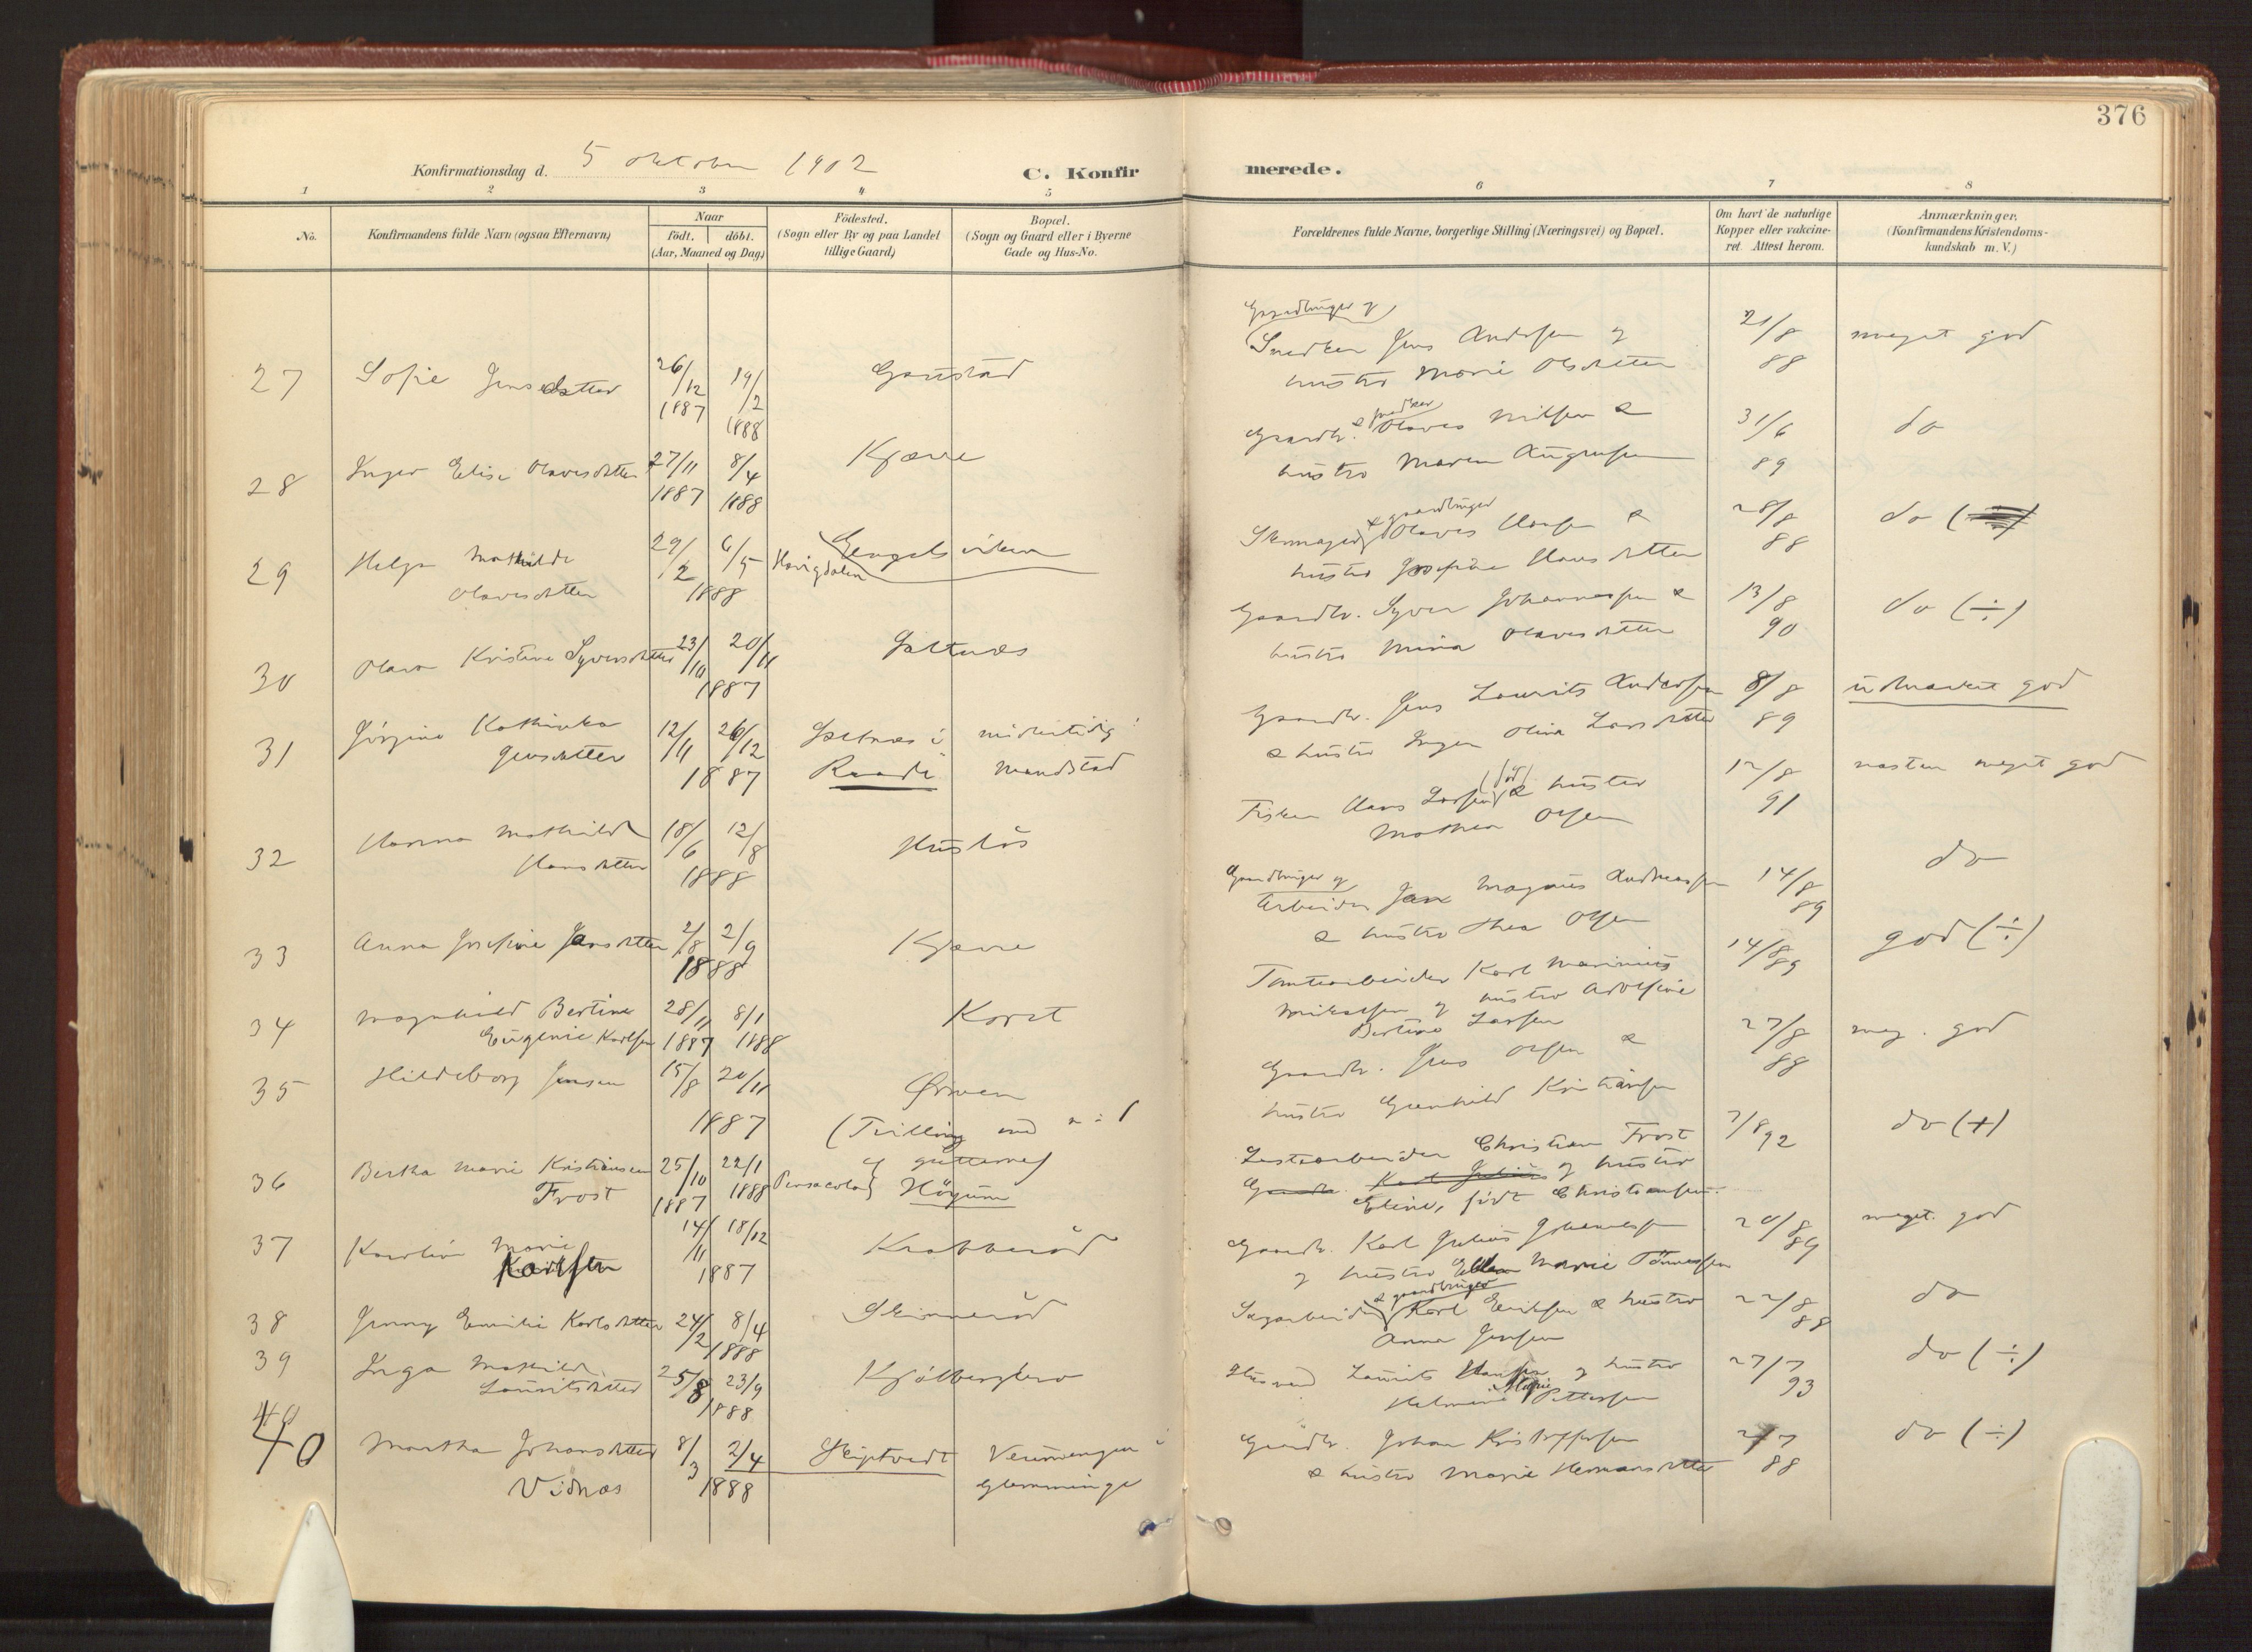 376
Konfirmationsdag d. 5 oktober 1902
C. Konfirmerede.
1 2 3 4 5 6 7 8
No.
Konfirmandens fulde Navn (ogsaa Efternavn)
Naar
födt. döbt.
(Aar, Maaned og Dag)
Födested.
(Sogn eller By og paa Landet
tillige Gaard)
Bopæl.
(Sogn og Gaard eller i Byerne
Gade og Hus-No.
Forældrenes fulde Navne, borgerlige Stilling (Næringsvei) og Bopæl.
Om havt de naturlige
Kopper eller vakcine-
ret. Attest herom.
Anmærkninger.
(Konfirmandens Kristendoms-
kundskab m. V.)
27 Sofie Jensdatter 26/12 1887 19/2 1888 Gaustad
Gaardbruger og
Snedker Jens Andersen og
hustru Marie Olsdatter
21/8 88 meget god
28 Inger Elise Olavesdatter 27/11 1887 8/4 1888 Kjærre
Gaardbr. & snedker Olaves Nilsen &
hustru Maren Augensen
31/6 89 do
29 Helga Mathilde
Olavesdatter 29/2 6/5 1888 Havigdalen Engelsviken
Skomager & gaardbruger Olaves Hansen &
hustru Josefine Hansdatter
28/8 88 do
30 Olava Kristine Syversdatter 23/10 20/11 1887 Saltnæs
Gaardbr. Syver Johannessen &
hustru Mina Olavesdatter
13/8 90 do (÷)
31 Jörgine Kathinka
Jensdatter 12/11 26/12 1887 Saltnæs i midlertidig
Raade Mandstad
Gaardbr. Jens Laurits Andersen
& hustru Inger Olina Larsdatter
8/8 89 udmærket god
32 Hanna Mathilde
Hansdatter 18/6 12/8 1888 Huslös
Fisker Hans Larsen (död) & hustru
Mathea Olsen
12/8 91 næsten meget god
33 Anna Josefine Jansdatter 2/8 2/9 1888 Kjærre
Gaardbruger og
Arbeider Jan Magnus Andreassen
& hustru Thea Olsen
14/8 89 do
34 Magnhild Bertine
Eugenie Karlsen 28/11 1887 8/1 1888 Karet
Tomtearbeider Karl Marinius
Mikalsen og hustru Adolfine
Bertine Larsen
14/8 89 god (÷)
35 Hildeborg Jensen 15/8 20/11 1887 Ørmen
(Tvilling med n: 1
af gutterne)
Gaardbr. Jens Olsen &
hustru Gunhild Kristiansen
27/8 88 meg. god
36 Bertha Marie Kristiansen
Frost 25/10 1887 22/1 1888 Pensacola Höyum
Lastearbeider Christian Frost
Gaardbr. Karl Julius og hustru
Eline, födt Christiansen.
7/8 92 do (+)
37 Karoline Marie
Karlsen 14/11 18/12 1887 Krabberöd
Gaardbr. Karl Julius Johannessen
og hustru Ellen Marie Tönnessen
20/8 89 meget god
38 Jenny Emilie Karlsdatter 24/2 8/4 1888 Skinneröd
Sagarbeider & gaardbruger Karl Eriksen & hustru
Anna Jensen
22/8 88 do
39 Inga Mathilde
Lauritsdatter 25/8 23/9 1888 Kjölbergbro
Husmand Laurits Hansen og hustru
Helmine Marie Pettersen
27/7 93 do (÷)
40
40 Martha Johansdatter
Vidnes 8/3 2/4 1888 Skiptvedt Veumengen i
Glemminge
Gaardbr. Johan Kristoffersen
& hustru Marie Hermansdatter
2/7 88 do (÷)